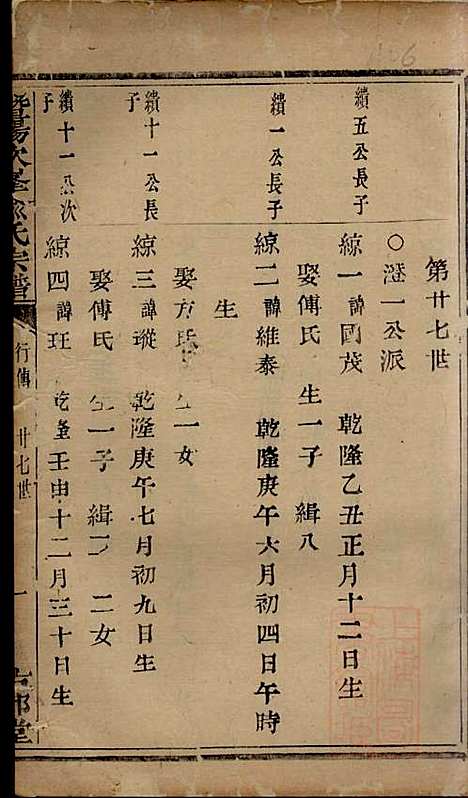 第廿七世
○澄一公派
繢五公長子
綡一 諱國茂 乾隆乙丑正月十二日生
娶傅氏 生一子 緝八
繢一公長子
綡二 諱維泰 乾隆庚午六月初四日午時
生
娶方氏 生一女
繢十一公長
子
綡三 諱瑽 乾隆庚午七月初九日生
娶傅氏 生一子 緝 二女
繢十一公次
子
綡四 諱玨 乾隆壬申十二月三十日生
暨陽次峯俞氏宗譜
行傳
廿七世
一